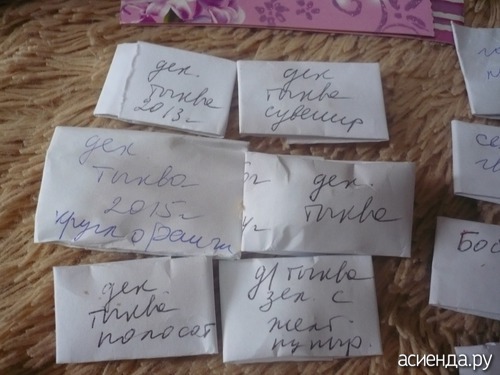 дек.
тыква
2013г
дек
тыква
сувенир
дек
тыква
2015г
кругл оранж
дек.
тыква
дек
тыква
полосат
д/тыква
зел. с
желт
пупыр.
Бос
асиенда.ру